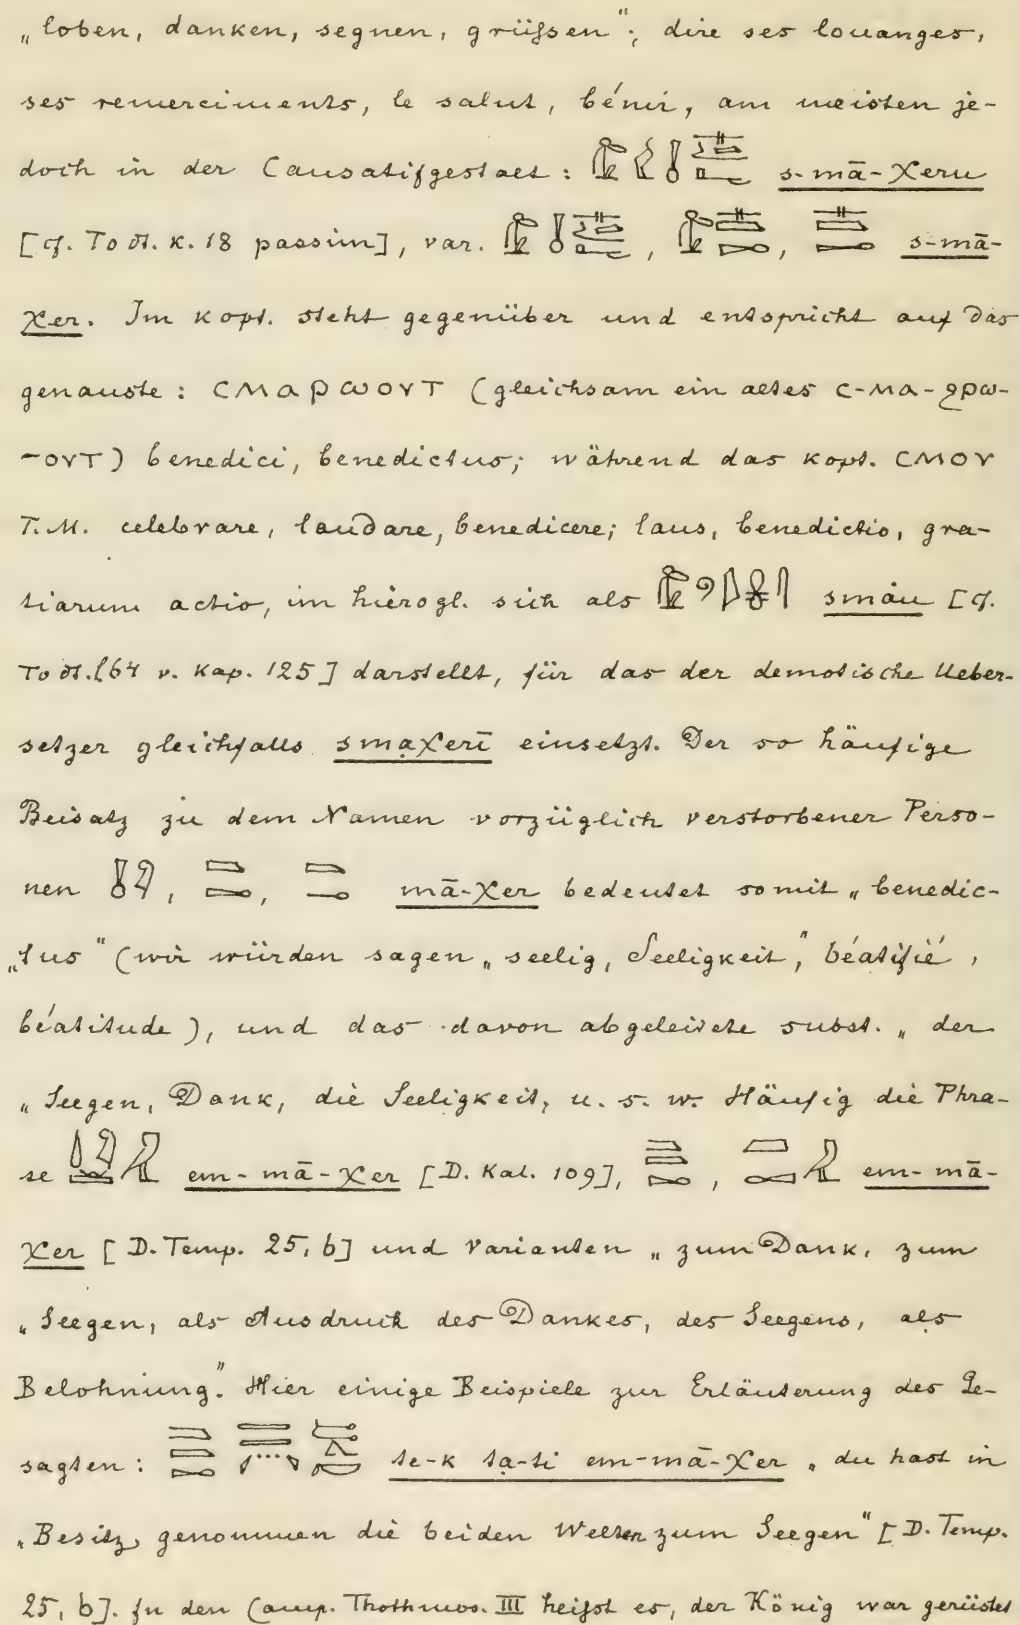 „loben, danken, segnen, grüßen“; dire ses louanges,
ses remerciments, le salut, bénir, am meisten je-
doch in der Causatifgestalt: s-mā-χeru
[cf. Todt. K. 18 passim], var. , , s-mā-
χer. Im kopt. steht gegenüber und entspricht auf das
genauste: ⲥⲙⲁⲣⲱⲟⲩⲧ (gleichsam ein altes ⲥ-ⲙⲁ-ϩⲣⲱ-
-ⲟⲩⲧ) benedici, benedictus; während das kopt. ⲥⲙⲟⲩ
T.M. celebrare, laudare, benedicere; laus, benedictio, gra-
tiarum actio, im hierogl. sich als smáu [cf.
Todt. l 64 v. Kap. 125] darstellt, für das der demotische Ueber-
setzer gleichfalls smaχerī einsetzt. Der so häufige
Beisatz zu dem Namen vorzüglich verstorbener Perso-
nen , , mā-χer bedeutet somit „benedic-
„tus“ (wir würden sagen „seelig, Seeligkeit“, béatifié,
béatitude), und das davon abgeleitete subst. „der
„Seegen, Dank, die Seeligkeit, u. s. w. Häufig die Phra-
se em-mā-χer [D. Kal. 109], , em-mā-
χer [D. Temp. 25, b] und Varianten „zum Dank, zum
„Seegen, als Ausdruck des Dankes, des Seegens, als
Belohnung“. Hier einige Beispiele zur Erläuterung des Ge-
sagten: te-k ta-ti em-mā-χer „du hast in
„Besitz genommen die beiden Welten zum Seegen“ [D. Temp.
25, b]. In den Camp. Thothmos. III heißt es, der König war gerüstet